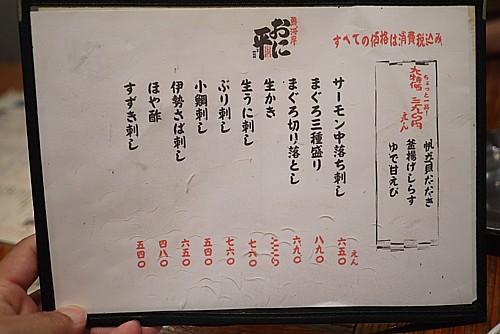 すべての価格は消費税込み
おに平
ちょっと
大特価
えん
帆立貝たたき
釜揚げしらす
ゆで甘えび
サーモン中落ち刺し 六五〇えん
まぐろ三種盛り 八九〇
まぐろ切り落とし 六九〇
生かき
生うに刺し 七六〇
ぶり刺し 七六〇
小鯛刺し 五四〇
伊勢さば刺し 六五〇
ほや酢 四八〇
すずき刺し 五四〇